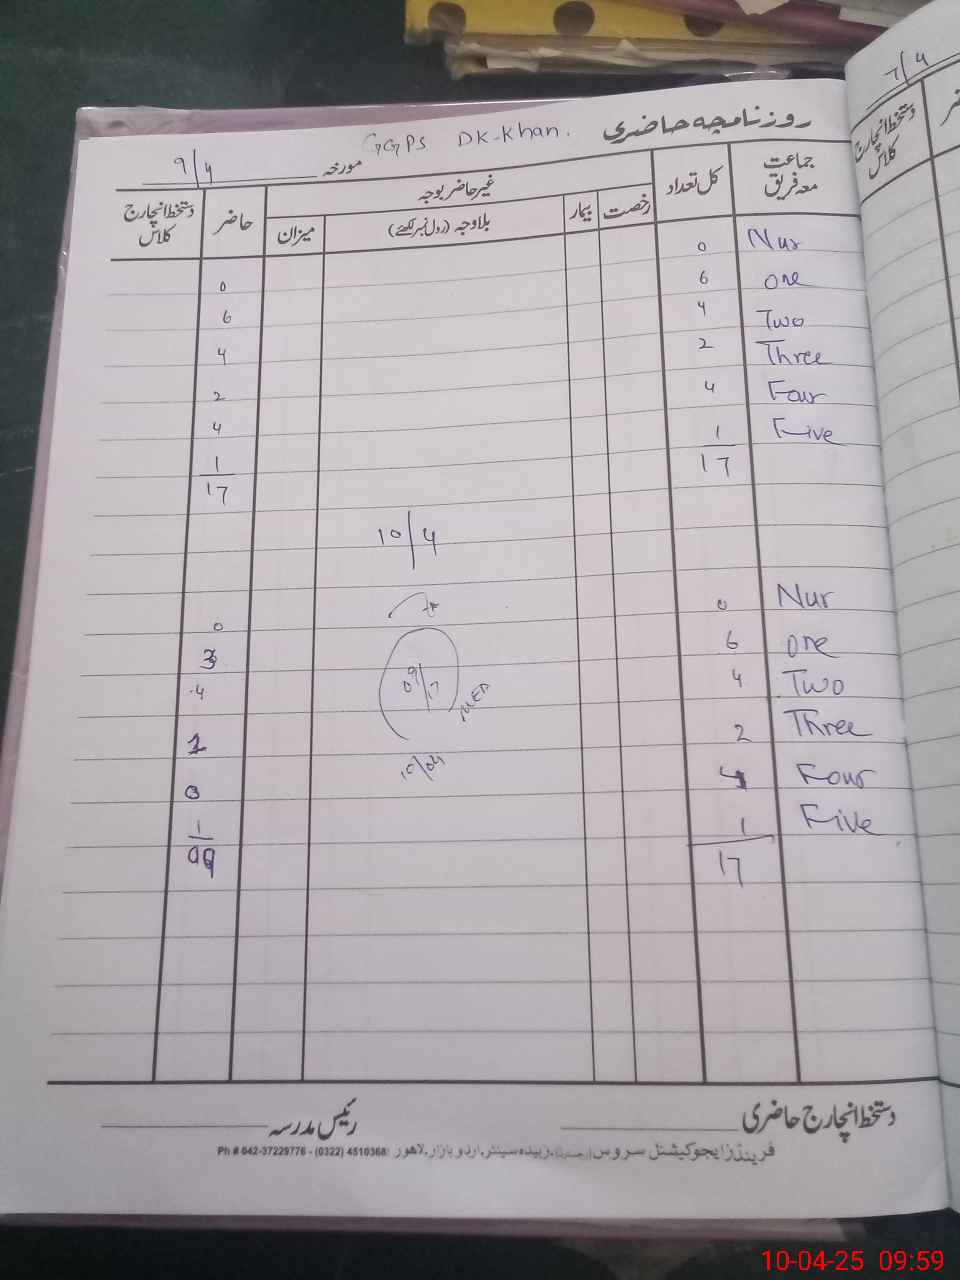 روزنامچہ حاضری GGPS DK-Khan.
مورخہ 9/4
جماعت معہ فریق کل تعداد غیر حاضر بوجہ حاضر دستخط انچارج کلاس
رخصت بیمار بلاوجہ (رول نمبر لکھئے) میزان
Nur 0 0
one 6 6
Two 4 4
Three 2 2
Four 4 4
Five 1 1
17 17
10/4
Nur 0 0
one 6 3
Two 4 4
Three 2 1
Four 4 0
Five 1 1
17 09
09/17
10/04
دستخط انچارج حاضری رئیس مدرسہ
فرینڈز ایجوکیشنل سروس زبیدہ سینٹر، اردو بازار، لاہور Ph # 042-37229776 - (0322) 4510368
7/4
دستخط انچارج کلاس
10-04-25 09:59